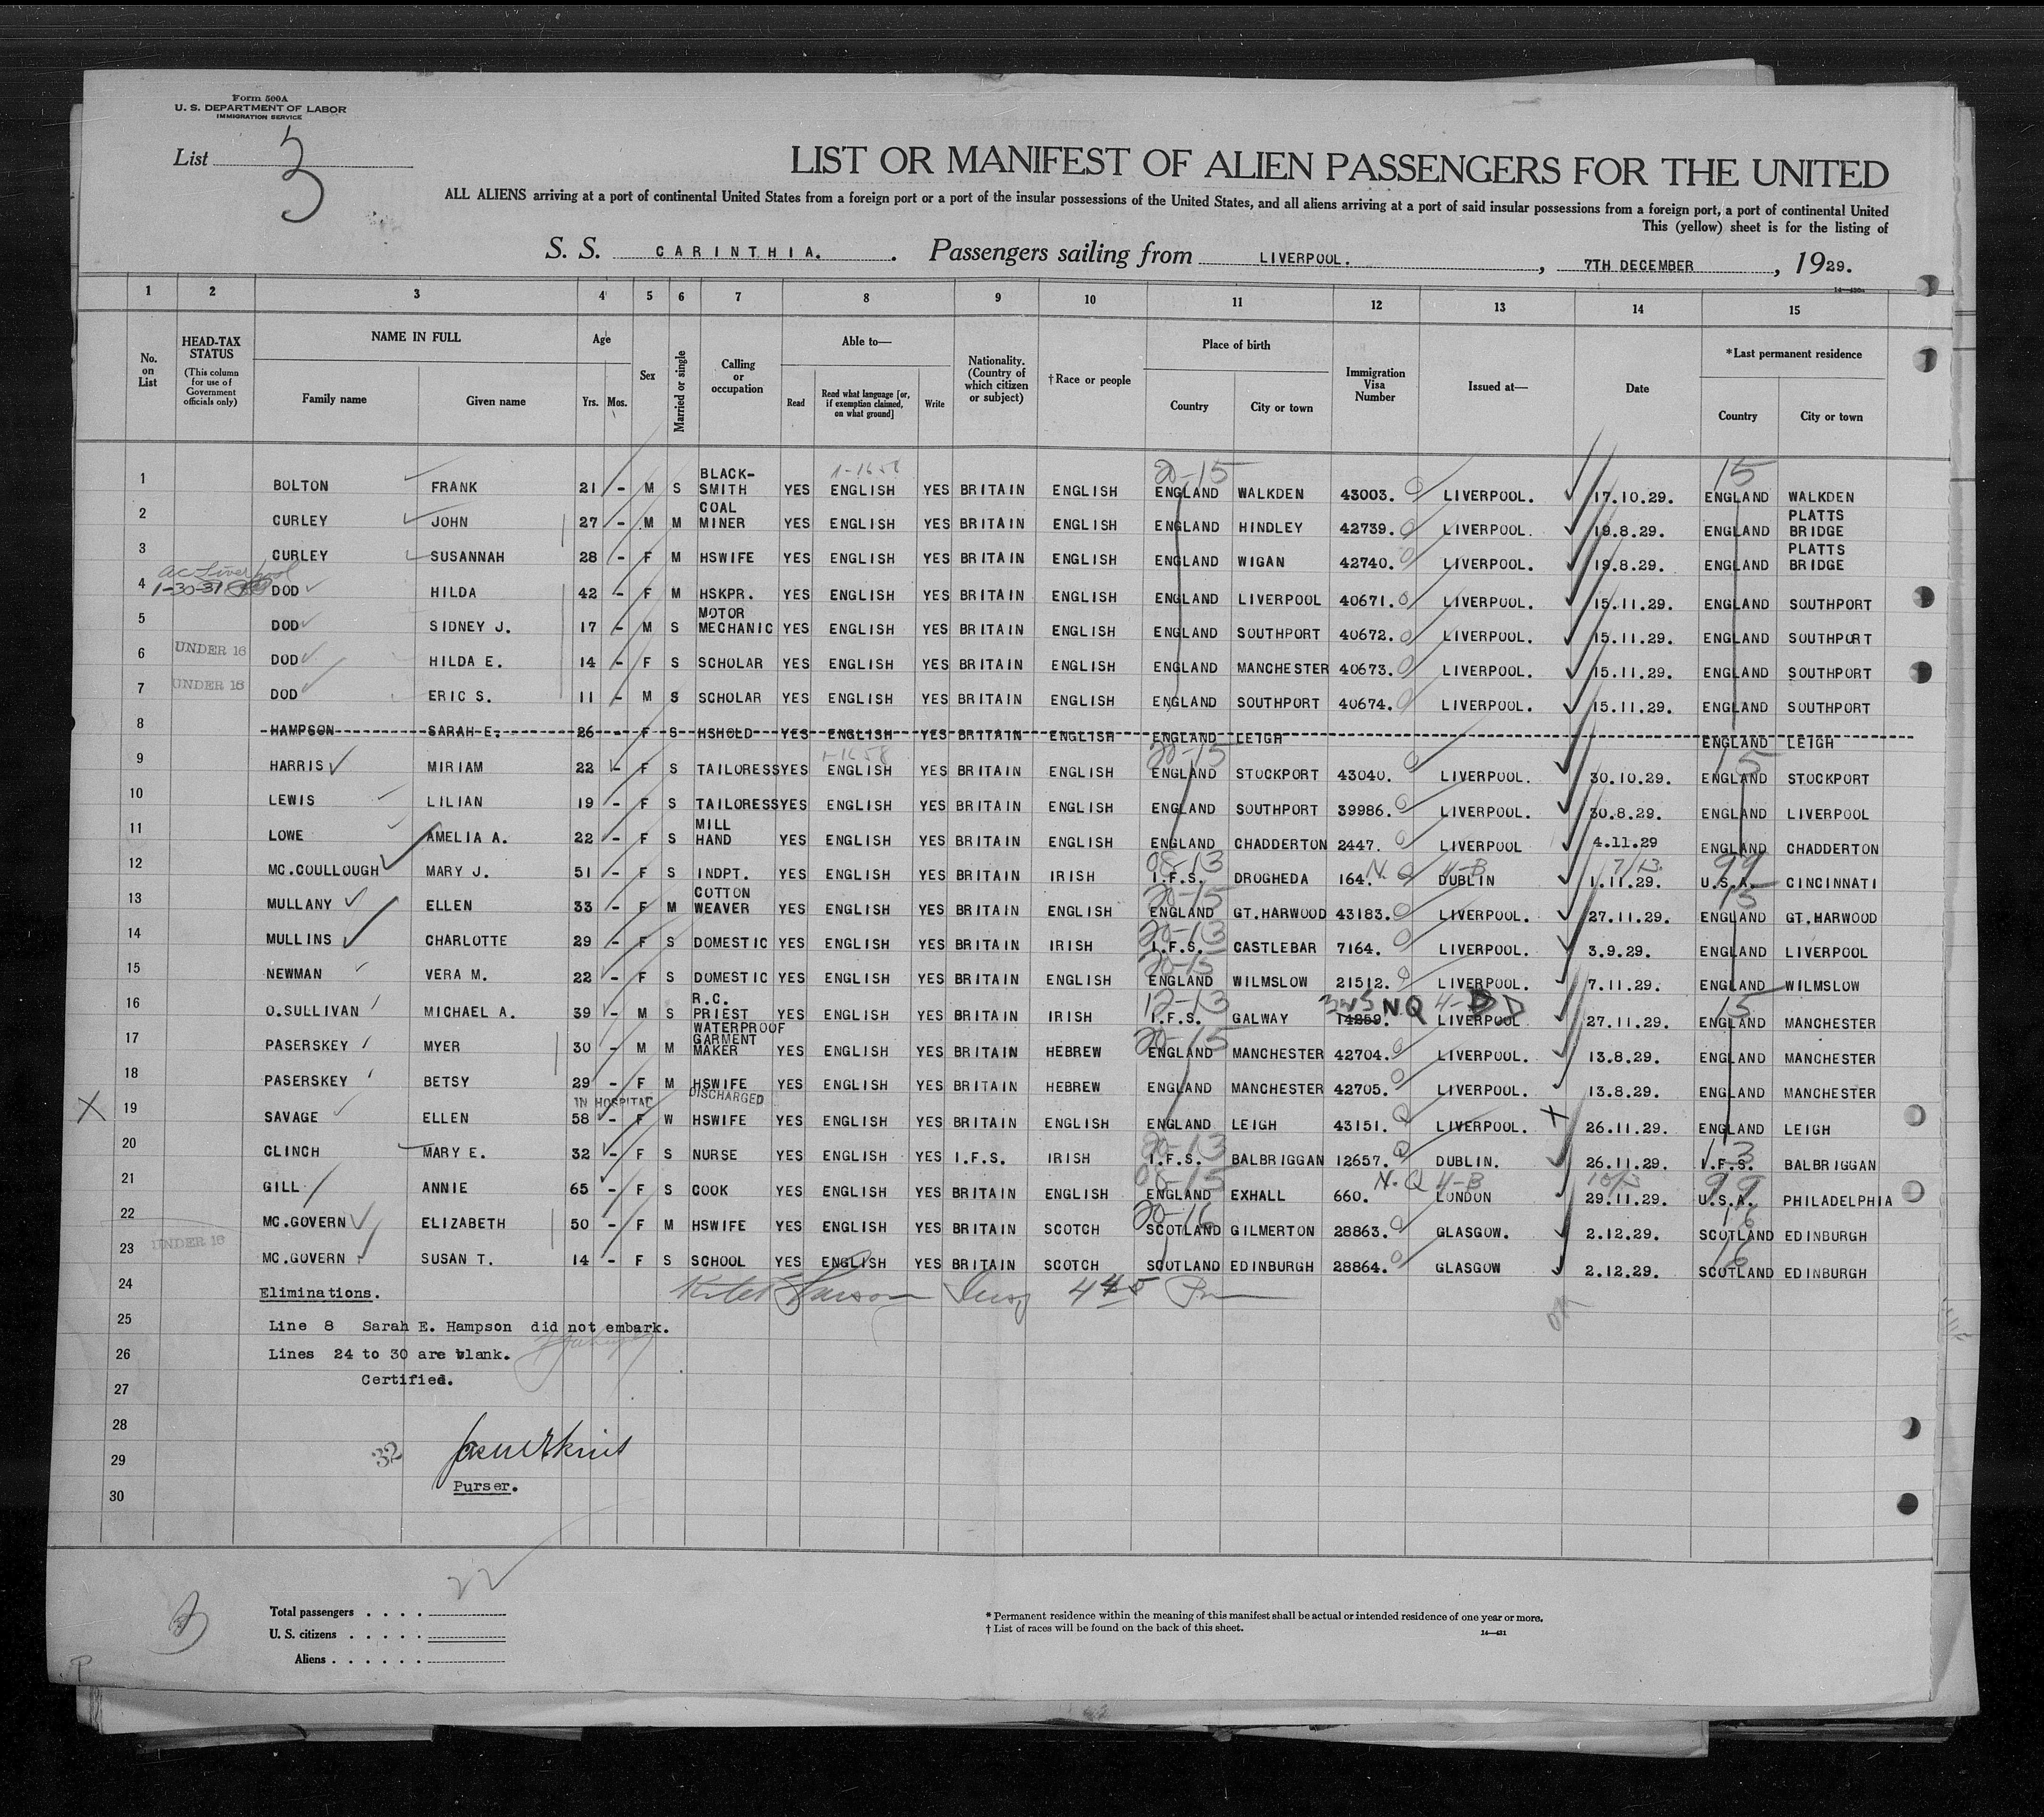 Form 500A
U. S. DEPARTMENT OF LABOR
IMMIGRATION SERVICE
List 3
LIST OR MANIFEST OF ALIEN PASSENGERS FOR THE UNITED
ALL ALIENS arriving at a port of continental United States from a foreign port or a port of the insular possessions of the United States, and all aliens arriving at a port of said insular possessions from a foreign port, a port of continental United
This (yellow) sheet is for the listing of
S. S. CARINTHIA. . Passengers sailing from LIVERPOOL. , 7TH DECEMBER , 1929.
1 2 3 4 5 6 7 8 9 10 11 12 13 14 15
No. on List
HEAD-TAX STATUS (This column for use of Government officials only)
NAME IN FULL
Family name
Given name
Age
Yrs.
Mos.
Sex
Married or single
Calling or occupation
Able to—
Read
Read what language [or, if exemption claimed, on what ground]
Write
Nationality. (Country of which citizen or subject)
† Race or people
Place of birth
Country
City or town
Immigration Visa Number
Issued at—
Date
*Last permanent residence
Country
City or town
1-1658 20-15 15
1 BOLTON FRANK 21 - M S BLACK-SMITH YES ENGLISH YES BRITAIN ENGLISH ENGLAND WALKDEN 43003. LIVERPOOL. 17.10.29. ENGLAND WALKDEN
2 CURLEY JOHN 27 - M M COAL MINER YES ENGLISH YES BRITAIN ENGLISH ENGLAND HINDLEY 42739. LIVERPOOL. 19.8.29. ENGLAND PLATTS BRIDGE
3 CURLEY SUSANNAH 28 - F M HSWIFE YES ENGLISH YES BRITAIN ENGLISH ENGLAND WIGAN 42740. LIVERPOOL. 19.8.29. ENGLAND PLATTS BRIDGE
ac Liverpool
1-30-31
4 DOD HILDA 42 - F M HSKPR. YES ENGLISH YES BRITAIN ENGLISH ENGLAND LIVERPOOL 40671. LIVERPOOL. 15.11.29. ENGLAND SOUTHPORT
5 DOD SIDNEY J. 17 - M S MOTOR MECHANIC YES ENGLISH YES BRITAIN ENGLISH ENGLAND SOUTHPORT 40672. LIVERPOOL. 15.11.29. ENGLAND SOUTHPORT
6 UNDER 16 DOD HILDA E. 14 - F S SCHOLAR YES ENGLISH YES BRITAIN ENGLISH ENGLAND MANCHESTER 40673. LIVERPOOL. 15.11.29. ENGLAND SOUTHPORT
7 UNDER 16 DOD ERIC S. 11 - M S SCHOLAR YES ENGLISH YES BRITAIN ENGLISH ENGLAND SOUTHPORT 40674. LIVERPOOL. 15.11.29. ENGLAND SOUTHPORT
8 HAMPSON SARAH E. 26 - F S HSHOLD YES ENGLISH YES BRITAIN ENGLISH ENGLAND LEIGH ENGLAND LEIGH
1-1658 20-15 15
9 HARRIS MIRIAM 22 - F S TAILORESS YES ENGLISH YES BRITAIN ENGLISH ENGLAND STOCKPORT 43040. LIVERPOOL. 30.10.29. ENGLAND STOCKPORT
10 LEWIS LILIAN 19 - F S TAILORESS YES ENGLISH YES BRITAIN ENGLISH ENGLAND SOUTHPORT 39986. LIVERPOOL. 30.8.29. ENGLAND LIVERPOOL
11 LOWE AMELIA A. 22 - F S MILL HAND YES ENGLISH YES BRITAIN ENGLISH ENGLAND CHADDERTON 2447. LIVERPOOL 4.11.29 ENGLAND CHADDERTON
08-13 N.Q 4-B 7/13. 99
12 MC.COULLOUGH MARY J. 51 - F S INDPT. YES ENGLISH YES BRITAIN IRISH I.F.S. DROGHEDA 164. DUBLIN 1.11.29. U.S.A. CINCINNATI
20-15 15
13 MULLANY ELLEN 33 - F M COTTON WEAVER YES ENGLISH YES BRITAIN ENGLISH ENGLAND GT.HARWOOD 43183. LIVERPOOL. 27.11.29. ENGLAND GT.HARWOOD
20-13
14 MULLINS CHARLOTTE 29 - F S DOMESTIC YES ENGLISH YES BRITAIN IRISH I.F.S. CASTLEBAR 7164. LIVERPOOL. 3.9.29. ENGLAND LIVERPOOL
20-15
15 NEWMAN VERA M. 22 - F S DOMESTIC YES ENGLISH YES BRITAIN ENGLISH ENGLAND WILMSLOW 21512. LIVERPOOL. 7.11.29. ENGLAND WILMSLOW
12-13 NQ 4-D 15
16 O.SULLIVAN MICHAEL A. 39 - M S R.C. PRIEST YES ENGLISH YES BRITAIN IRISH I.F.S. GALWAY 14259. LIVERPOOL 27.11.29. ENGLAND MANCHESTER
20-15
17 PASERSKEY MYER 30 - M M WATERPROOF GARMENT MAKER YES ENGLISH YES BRITAIN HEBREW ENGLAND MANCHESTER 42704. LIVERPOOL. 13.8.29. ENGLAND MANCHESTER
18 PASERSKEY BETSY 29 - F M HSWIFE YES ENGLISH YES BRITAIN HEBREW ENGLAND MANCHESTER 42705. LIVERPOOL. 13.8.29. ENGLAND MANCHESTER
IN HOSPITAL DISCHARGED
X 19 SAVAGE ELLEN 58 - F W HSWIFE YES ENGLISH YES BRITAIN ENGLISH ENGLAND LEIGH 43151. LIVERPOOL. X 26.11.29. ENGLAND LEIGH
20-13 13
20 CLINCH MARY E. 32 - F S NURSE YES ENGLISH YES I.F.S. IRISH I.F.S. BALBRIGGAN 12657. DUBLIN. 26.11.29. I.F.S. BALBRIGGAN
08-15 N.Q 4-B 99
21 GILL ANNIE 65 - F S COOK YES ENGLISH YES BRITAIN ENGLISH ENGLAND EXHALL 660. LONDON 29.11.29. U.S.A. PHILADELPHIA
20-16 16
22 MC.GOVERN ELIZABETH 50 - F M HSWIFE YES ENGLISH YES BRITAIN SCOTCH SCOTLAND GILMERTON 28863. GLASGOW. 2.12.29. SCOTLAND EDINBURGH
16
23 UNDER 16 MC.GOVERN SUSAN T. 14 - F S SCHOOL YES ENGLISH YES BRITAIN SCOTCH SCOTLAND EDINBURGH 28864. GLASGOW 2.12.29. SCOTLAND EDINBURGH
24 Eliminations.
25 Line 8 Sarah E. Hampson did not embark.
26 Lines 24 to 30 are blank.
27 Certified.
28
29 32
Purser.
30
22
Total passengers . . . .
U. S. citizens . . . . .
Aliens . . . . . .
* Permanent residence within the meaning of this manifest shall be actual or intended residence of one year or more.
† List of races will be found on the back of this sheet.
14—431